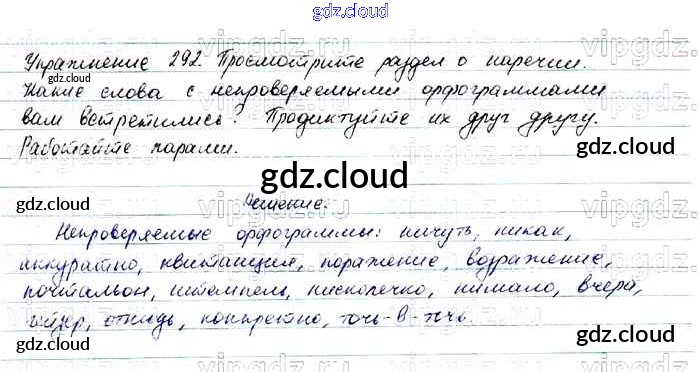 gdz.cloud
Упражнение 292. Просмотрите раздел о наречии.
gdz.cloud gdz.cloud
Какие слова с непроверяемыми орфограммами
вам встретились? Продиктуйте их друг другу.
Работайте парами.
gdz.cloud gdz.cloud
gdz.cloud
Решение.
Непроверяемые орфограммы: ничуть, никак,
gdz.cloud gdz.cloud
аккуратно, квитанция, поражение, возражение,
почтальон, штемпель, нисколечко, немало, вчера,
отнюдь, конкретно, точь-в-точь.
gdz.cloud gdz.cloud
gdz.cloud